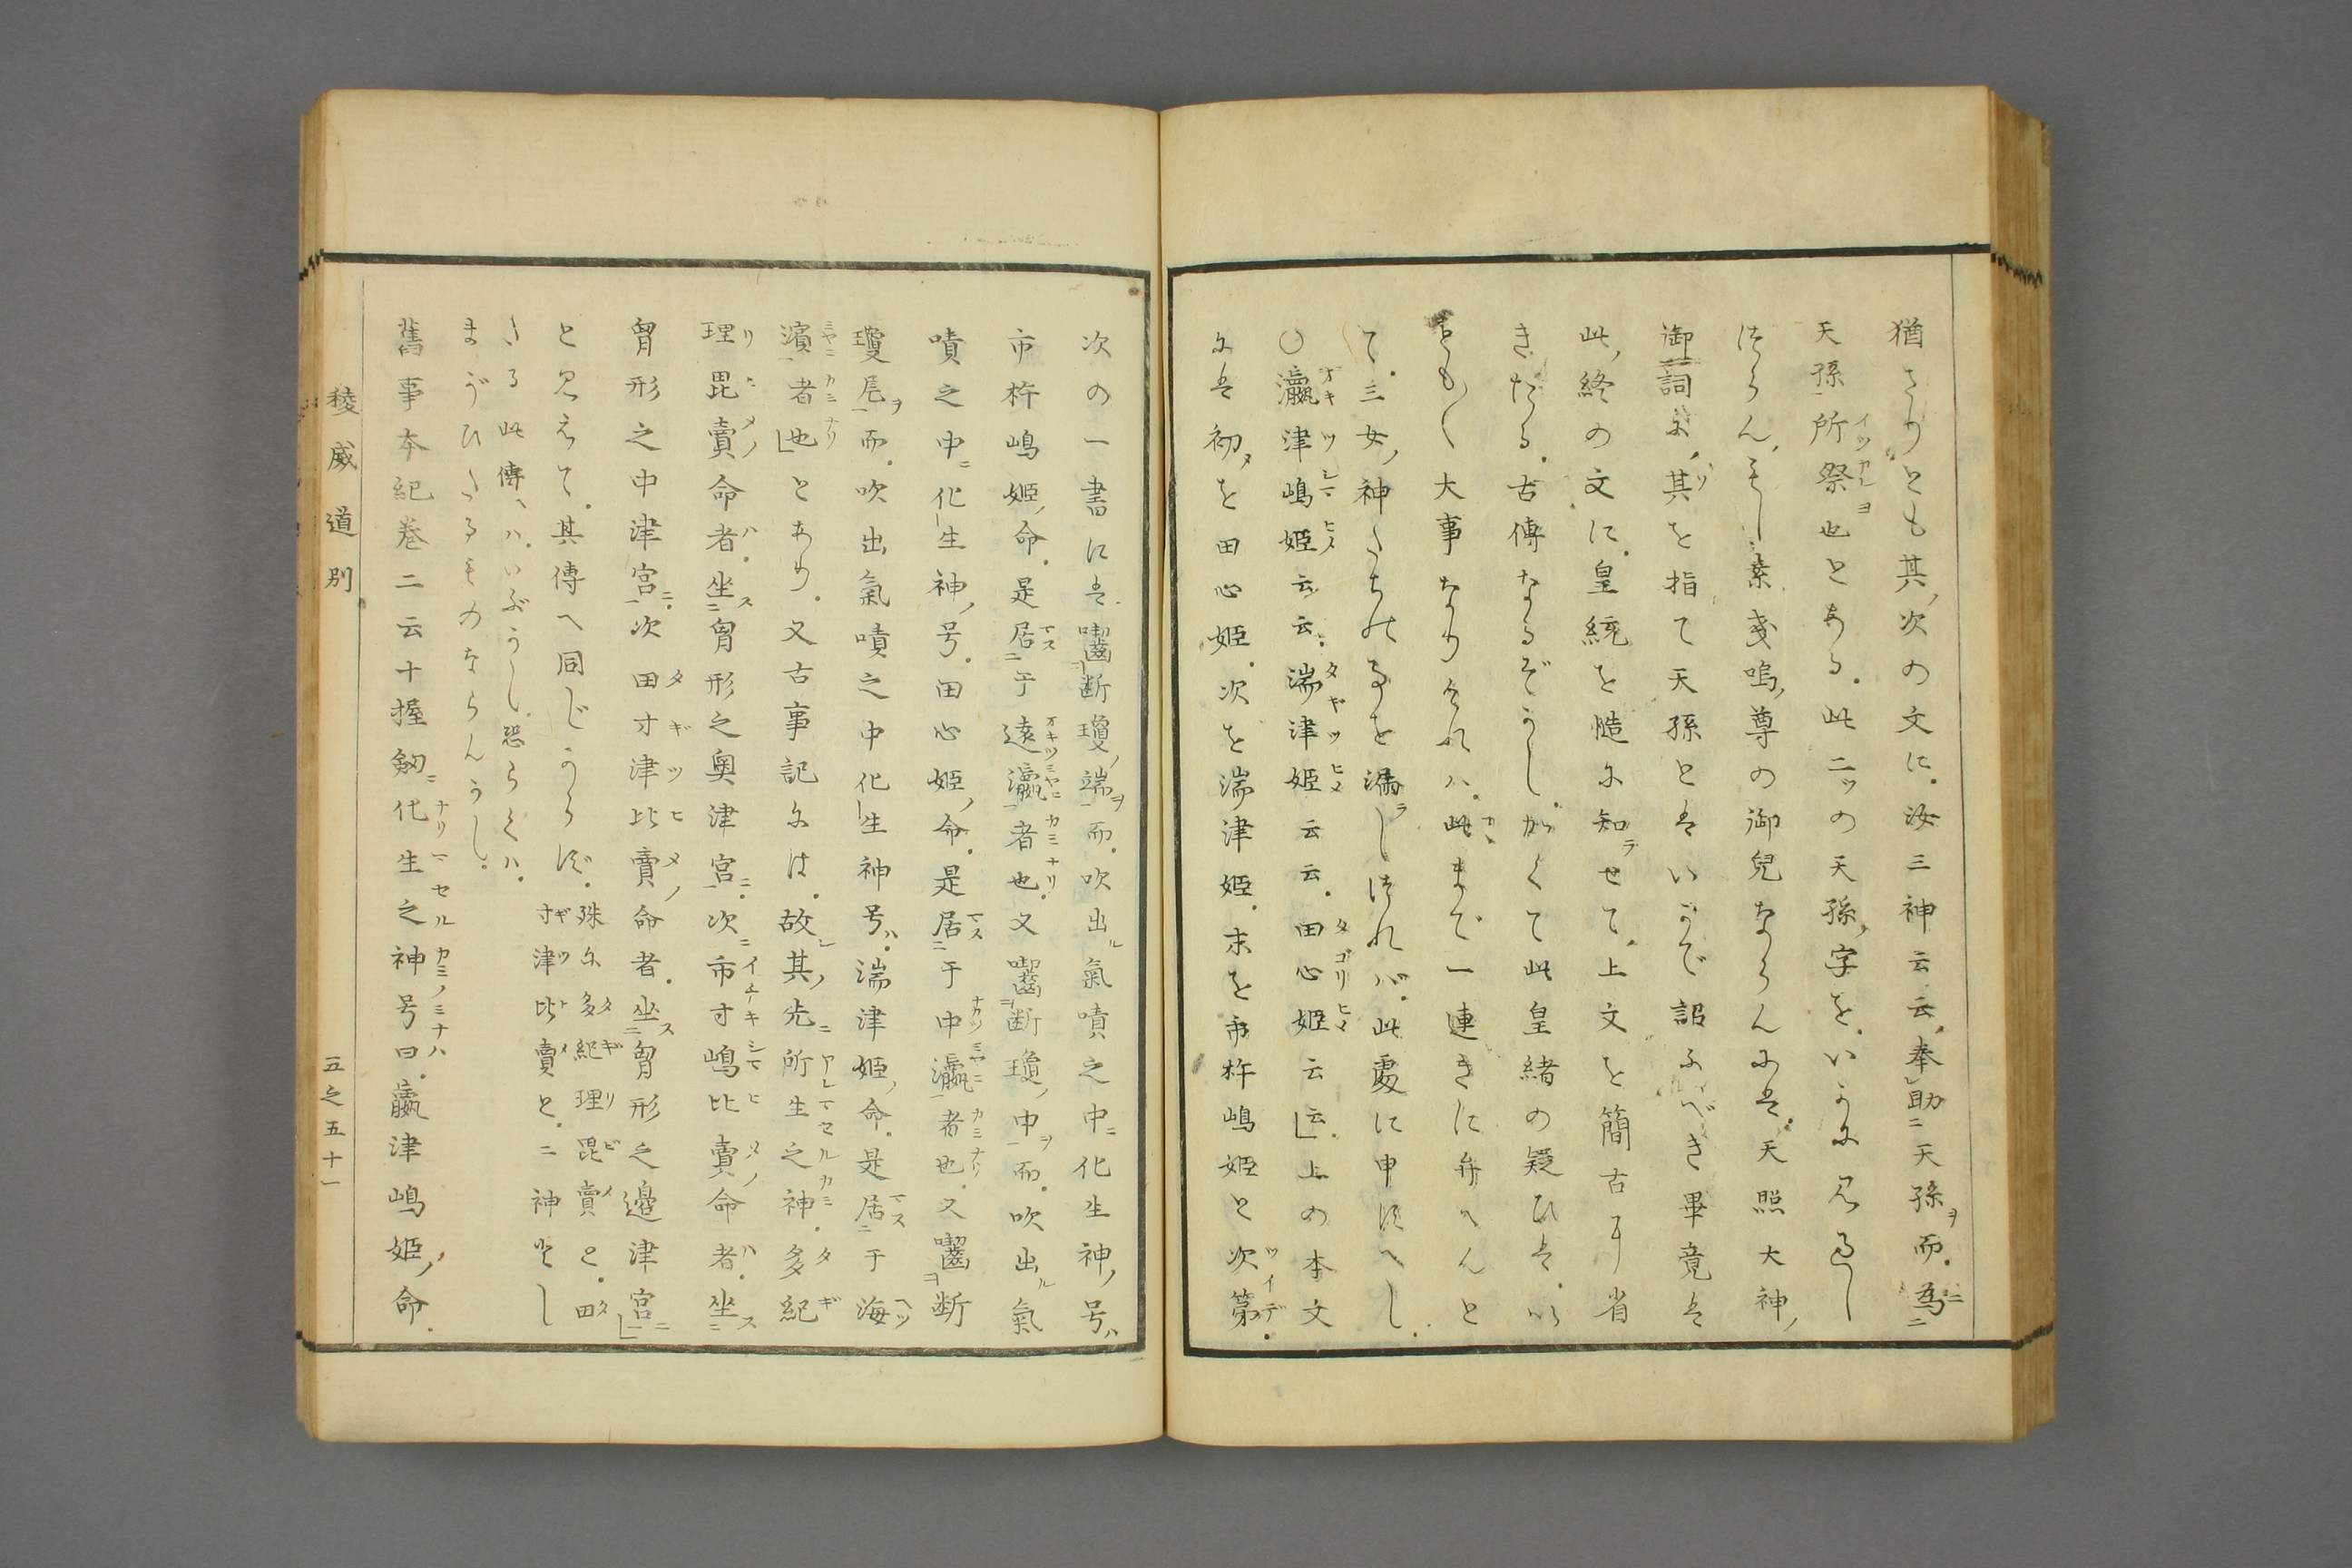 猶さりとも其ノ次の文に。汝三神云云。奉助天孫ヲ而。為ニ
天孫所祭也とある。此二ツの天孫ノ字を。いかに見過し
つらん。もし素戔嗚ノ尊の御兒ならんには。天照大神ノ
御詞に。其を指て天孫とはいかで詔ふべき畢竟は
此ノ終の文に。皇統を慥に知せて。上文を簡古に省
きたる。古傳なるぞかし。かくて此皇緒の疑ひは。いと
もも〳〵大事なりければ。此まで一連きに弁へんと
て。三女ノ神たちの事を漏しつれば。此處に申すべし。
〇瀛津嶋姫云云。湍津姫云云。田心姫云云」上の本文
には初を田心姫。次を湍津姫。末を市杵嶋姫と次第。
次の一書には。齧断瓊ノ端ヲ而。吹出ル氣噴之中ニ化生神ノ号ハ
市杵嶋姫ノ命。是居于遠瀛者也。又齧断瓊ノ中ヲ而。吹出ル氣
噴之中ニ化生神ノ号。田心姫ノ命。是居于中瀛者也。又齧断
瓊尾ヲ而。吹出氣噴之中化生神号ハ。湍津姫ノ命。是居于海
濱者也」とあり。又古事記には。故其ノ先ニ所生之神。多紀
理毘賣ノ命者。坐胷形之奥津宮。次ニ市寸嶋比賣ノ命者。坐
胷形之中津宮。次田寸津比賣ノ命者。坐胷形之邊津宮」
と見えて。其傳へ同じからず。殊に多紀理毘賣と。田
寸津比賣と。二神とし
たる此傳へハ。いぶかし。恐らくハ。
まがひたるものならんかし。
舊事本紀巻二云十握劔ニ化生之神号曰。瀛津嶋姫ノ命。
稜威道別
五之五十一